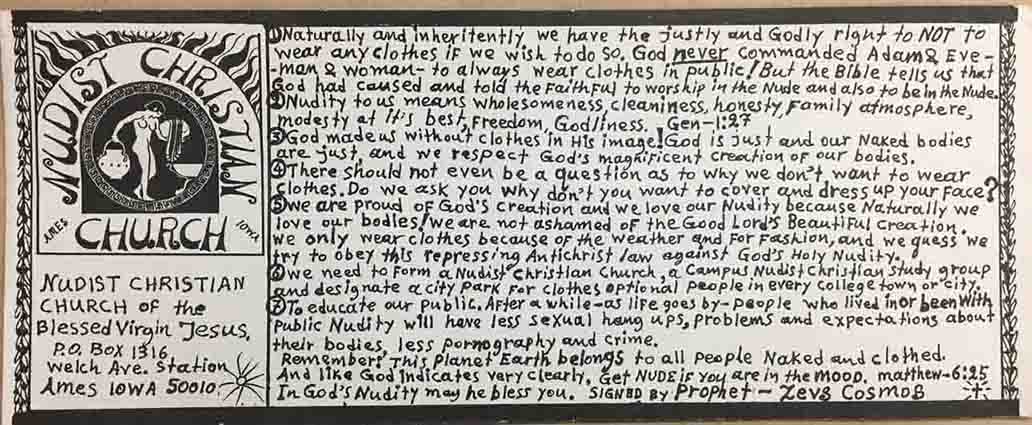 NUDIST CHRISTIAN
CHURCH
AMES IOWA
NUDIST CHRISTIAN
CHURCH OF the
Blessed Virgin Jesus,
P.O. Box 1316
Welch Ave. Station
Ames IOWA 50010.
①Naturally and inheritently we have the justly and Godly right to NOT to
wear any clothes if we wish to do so. God never Commanded Adam & Eve-
-man & woman- to always wear clothes in public! But the Bible tells us that
God had caused and told the Faithful to worship in the Nude and also to be in the Nude.
②Nudity to us means wholesomeness, cleaniness, honesty, Family atmosphere,
modesty at it's best, Freedom, Godliness. Gen-1:27
③God made us without clothes in His image! God is just and our Naked bodies
are just, and we respect God's magnificent creation of our bodies.
④There should not even be a question as to why we don't want to wear
Clothes. Do we ask you why don't you want to cover and dress up your Face?
⑤We are proud of God's Creation and we love our Nudity because Naturally we
love our bodies! We are not ashamed of the Good Lord's Beautiful Creation.
We only wear clothes because of the weather and For Fashion, and we guess we
try to obey this repressing Antichrist law against God's Holy Nudity.
⑥We need to Form a Nudist Christian Church, a Campus Nudist Christian study group
and designate a city Park For clothes optional people in every college town or city.
⑦To educate our public. After a while-as life goes by-people who lived in or been with
Public Nudity will have less sexual hang ups, problems and expectations about
their bodies, less pornography and crime.
Remember! This Planet Earth belongs to all people Naked and clothed.
And like God indicates very clearly, Get NUDE if you are in the MOOD. matthew-6:25
In God's Nudity may he bless you. SIGNED BY Prophet - Zeus Cosmos